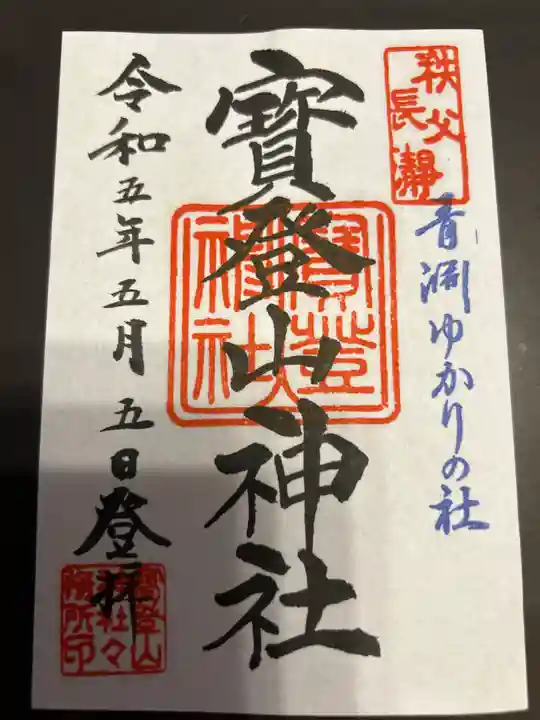 秩父
長瀞
青淵ゆかりの社
寳登山神社
寳登山
神社
令和五年五月五日登拝
寳登山
神社々
務所印